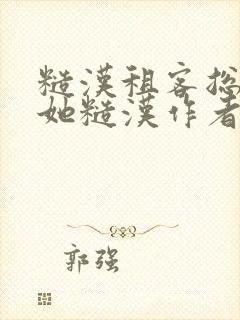 糙漢租客总
她糙漢作者
郭强